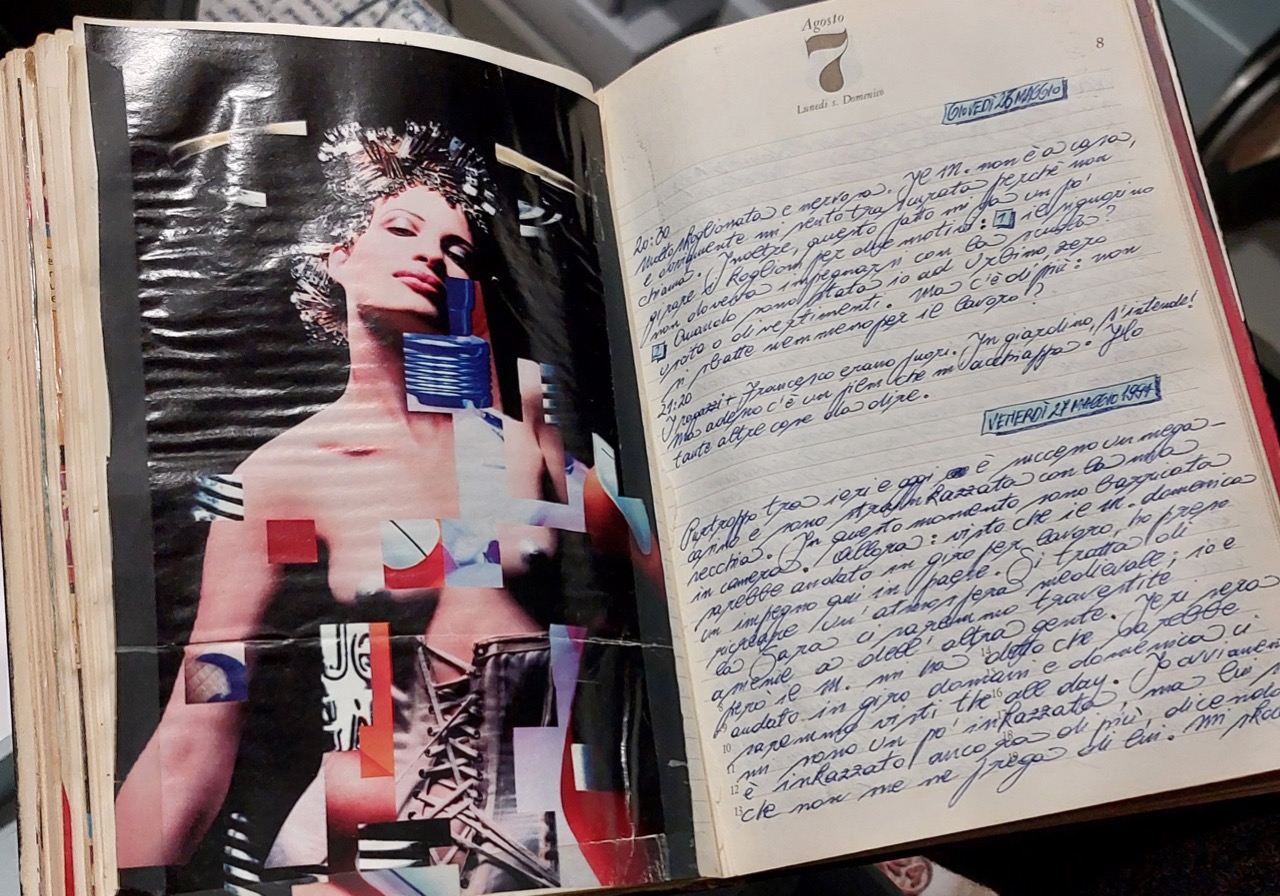 Agosto
7
Lunedì s. Domenico
8
GIOVEDÌ 26 MAGGIO
20:30
Molto skoglionata e nervosa. Je M. non è a casa,
e ovviamente mi sento trascurata perchè non
chiama. Inoltre, questo fatto mi fa un po'
girare i koglioni per due motivi: 1 il signorino
non doveva impegnarsi con la scuola?
2 Quando sono stata io ad Urbino, zero
uscite o divertimenti. Ma c'è di più: non
si sbatte nemmeno per il lavoro!?
21:20
I ragazzi + Francesco erano fuori. In giardino, s'intende!
Ma adesso c'è un film che mi acchiappa. Ho
tante altre cose da dire.
VENERDÌ 27 MAGGIO 1994
Purtroppo tra ieri e oggi è successo un mega-
casino e sono strainkazzata con la mia
vecchia. In questo momento sono barricata
in camera. Allora: visto che ie M. domenica
sarebbe andato in giro per lavoro, ho preso
un impegno qui in paese. Si tratta di
ricreare un'atmosfera medievale; io e
la Sara ci saremmo travestite
assieme a dell'altra gente. Ieri sera
però ie M. mi ha detto che sarebbe
andato in giro domani e domenica ci
saremmo visti the all day. Io ovviamente
mi sono un po' inkazzata, ma lui si
è inkazzato ancora di più, dicendo
che non me ne frega di lui. Mi
8
9
10
11
12
13
14
16
18
JG